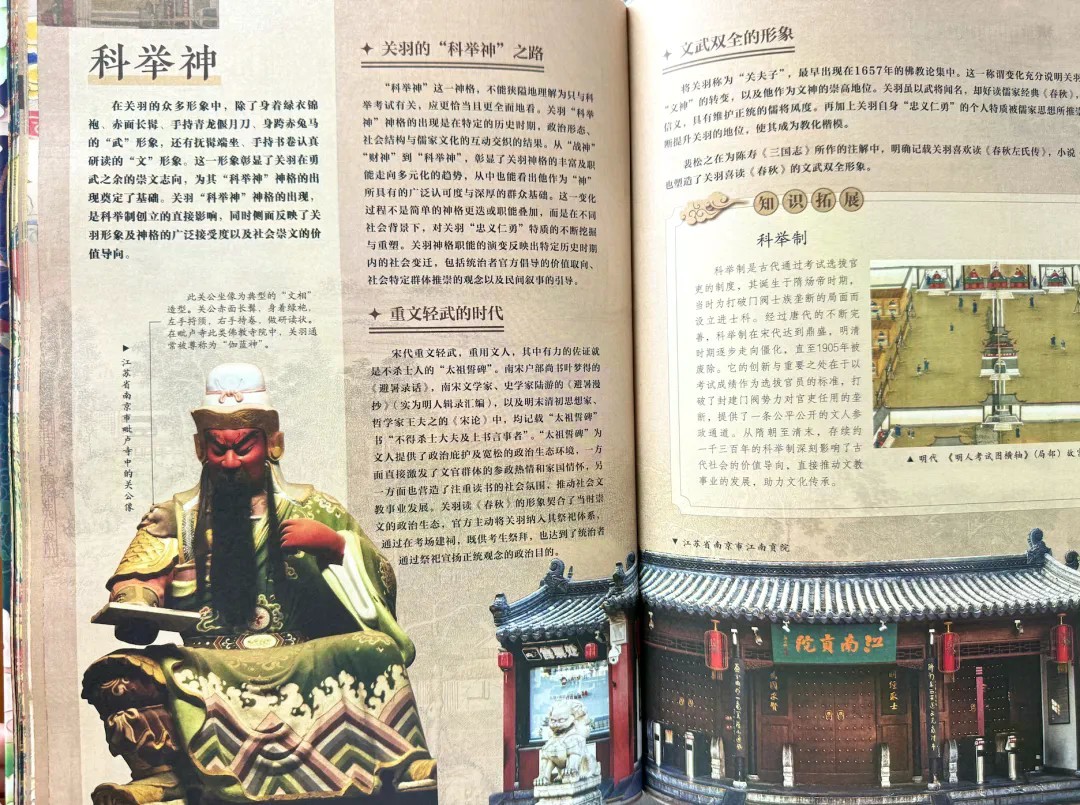 科举神
在关羽的众多形象中，除了身着绿衣锦
袍、赤面长髯、手持青龙偃月刀、身跨赤兔马
的“武”形象，还有抚髯端坐、手持书卷认真
研读的“文”形象。这一形象彰显了关羽在勇
武之余的崇文志向，为其“科举神”神格的出
现奠定了基础。关羽“科举神”神格的出现，
是科举制创立的直接影响，同时侧面反映了关
羽形象及神格的广泛接受度以及社会崇文的价
值导向。
此关公坐像为典型的“文相”
造型。关公赤面长髯、身着绿袍，
左手捋须，右手持卷、做研读状。
在毗卢寺此类佛教寺院中，关羽通
常被尊称为“伽蓝神”。
▶江苏省南京市毗卢寺中的关公像
关羽的“科举神”之路
“科举神”这一神格，不能狭隘地理解为只与科
举考试有关，应更恰当且更全面地看。关羽“科举
神”神格的出现是在特定的历史时期，政治形态、
社会结构与儒家文化的互动交织的结果。从“战神”
“财神”到“科举神”，彰显了关羽神格的丰富及职
能走向多元化的趋势，从中也能看出他作为“神”
所具有的广泛认可度与深厚的群众基础。这一变化
过程不是简单的神格更迭或职能叠加，而是在不同
社会背景下，对关羽“忠义仁勇”特质的不断挖掘
与重塑。关羽神格职能的演变反映出特定历史时期
内的社会变迁，包括统治者官方倡导的价值取向、
社会特定群体推崇的观念以及民间叙事的引导。
重文轻武的时代
宋代重文轻武，重用文人，其中有力的佐证就
是不杀士人的“太祖誓碑”。南宋户部尚书叶梦得的
《避暑录话》，南宋文学家、史学家陆游的《避暑漫
抄》（实为明人辑录汇编），以及明末清初思想家、
哲学家王夫之的《宋论》中，均记载“太祖誓碑”
书“不得杀士大夫及上书言事者”。“太祖誓碑”为
文人提供了政治庇护及宽松的政治生态环境，一方
面直接激发了文官群体的参政热情和家国情怀，另
一方面也营造了注重读书的社会氛围，推动社会文
教事业发展。关羽读《春秋》的形象契合了当时崇
文的政治生态，官方主动将关羽纳入其祭祀体系，
通过在考场建祠，既供考生祭拜，也达到了统治者
通过祭祀宣扬正统观念的政治目的。
文武双全的形象
将关羽称为“关夫子”，最早出现在1657年的佛教论集中。这一称谓变化充分说明关羽
“文神”的转变，以及他作为文神的崇高地位。关羽虽以武将闻名，却好读儒家经典《春秋》，
信义，具有维护正统的儒将风度。再加上关羽自身“忠义仁勇”的个人特质被儒家思想所推崇
断提升关羽的地位，使其成为教化楷模。
裴松之在为陈寿《三国志》所作的注解中，明确记载关羽喜欢读《春秋左氏传》，小说
也塑造了关羽喜读《春秋》的文武双全形象。
知识拓展
科举制
科举制是古代通过考试选拔官
吏的制度，其诞生于隋炀帝时期，
当时为打破门阀士族垄断的局面而
设立进士科。经过唐代的不断完
善，科举制在宋代达到鼎盛，明清
时期逐步走向僵化，直至1905年被
废除。它的创新与重要之处在于以
考试成绩作为选拔官员的标准，打
破了封建门阀势力对官吏任用的垄
断，提供了一条公平公开的文人参
政通道。从隋朝至清末，存续的
一千三百年的科举制深刻影响了古
代社会的价值导向，直接推动文教
事业的发展，助力文化传承。
▲明代 《明人考试图横轴》（局部）故宫
▼江苏省南京市江南贡院
江南貢院
明经取士